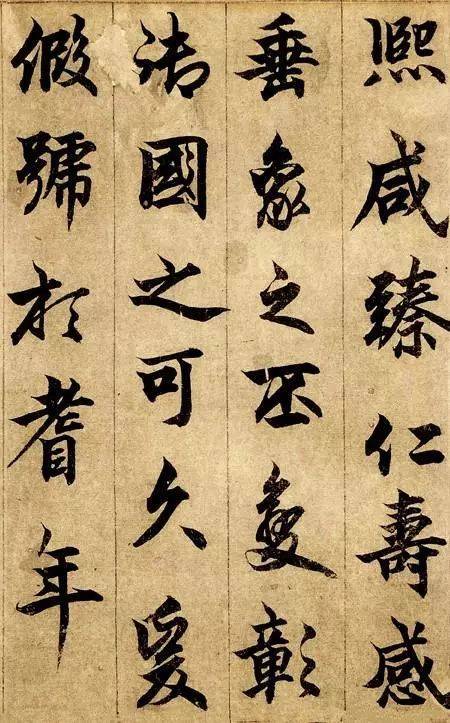 熙咸臻仁壽感
垂象之丕變彰
御國之可久爰
假號於耆年